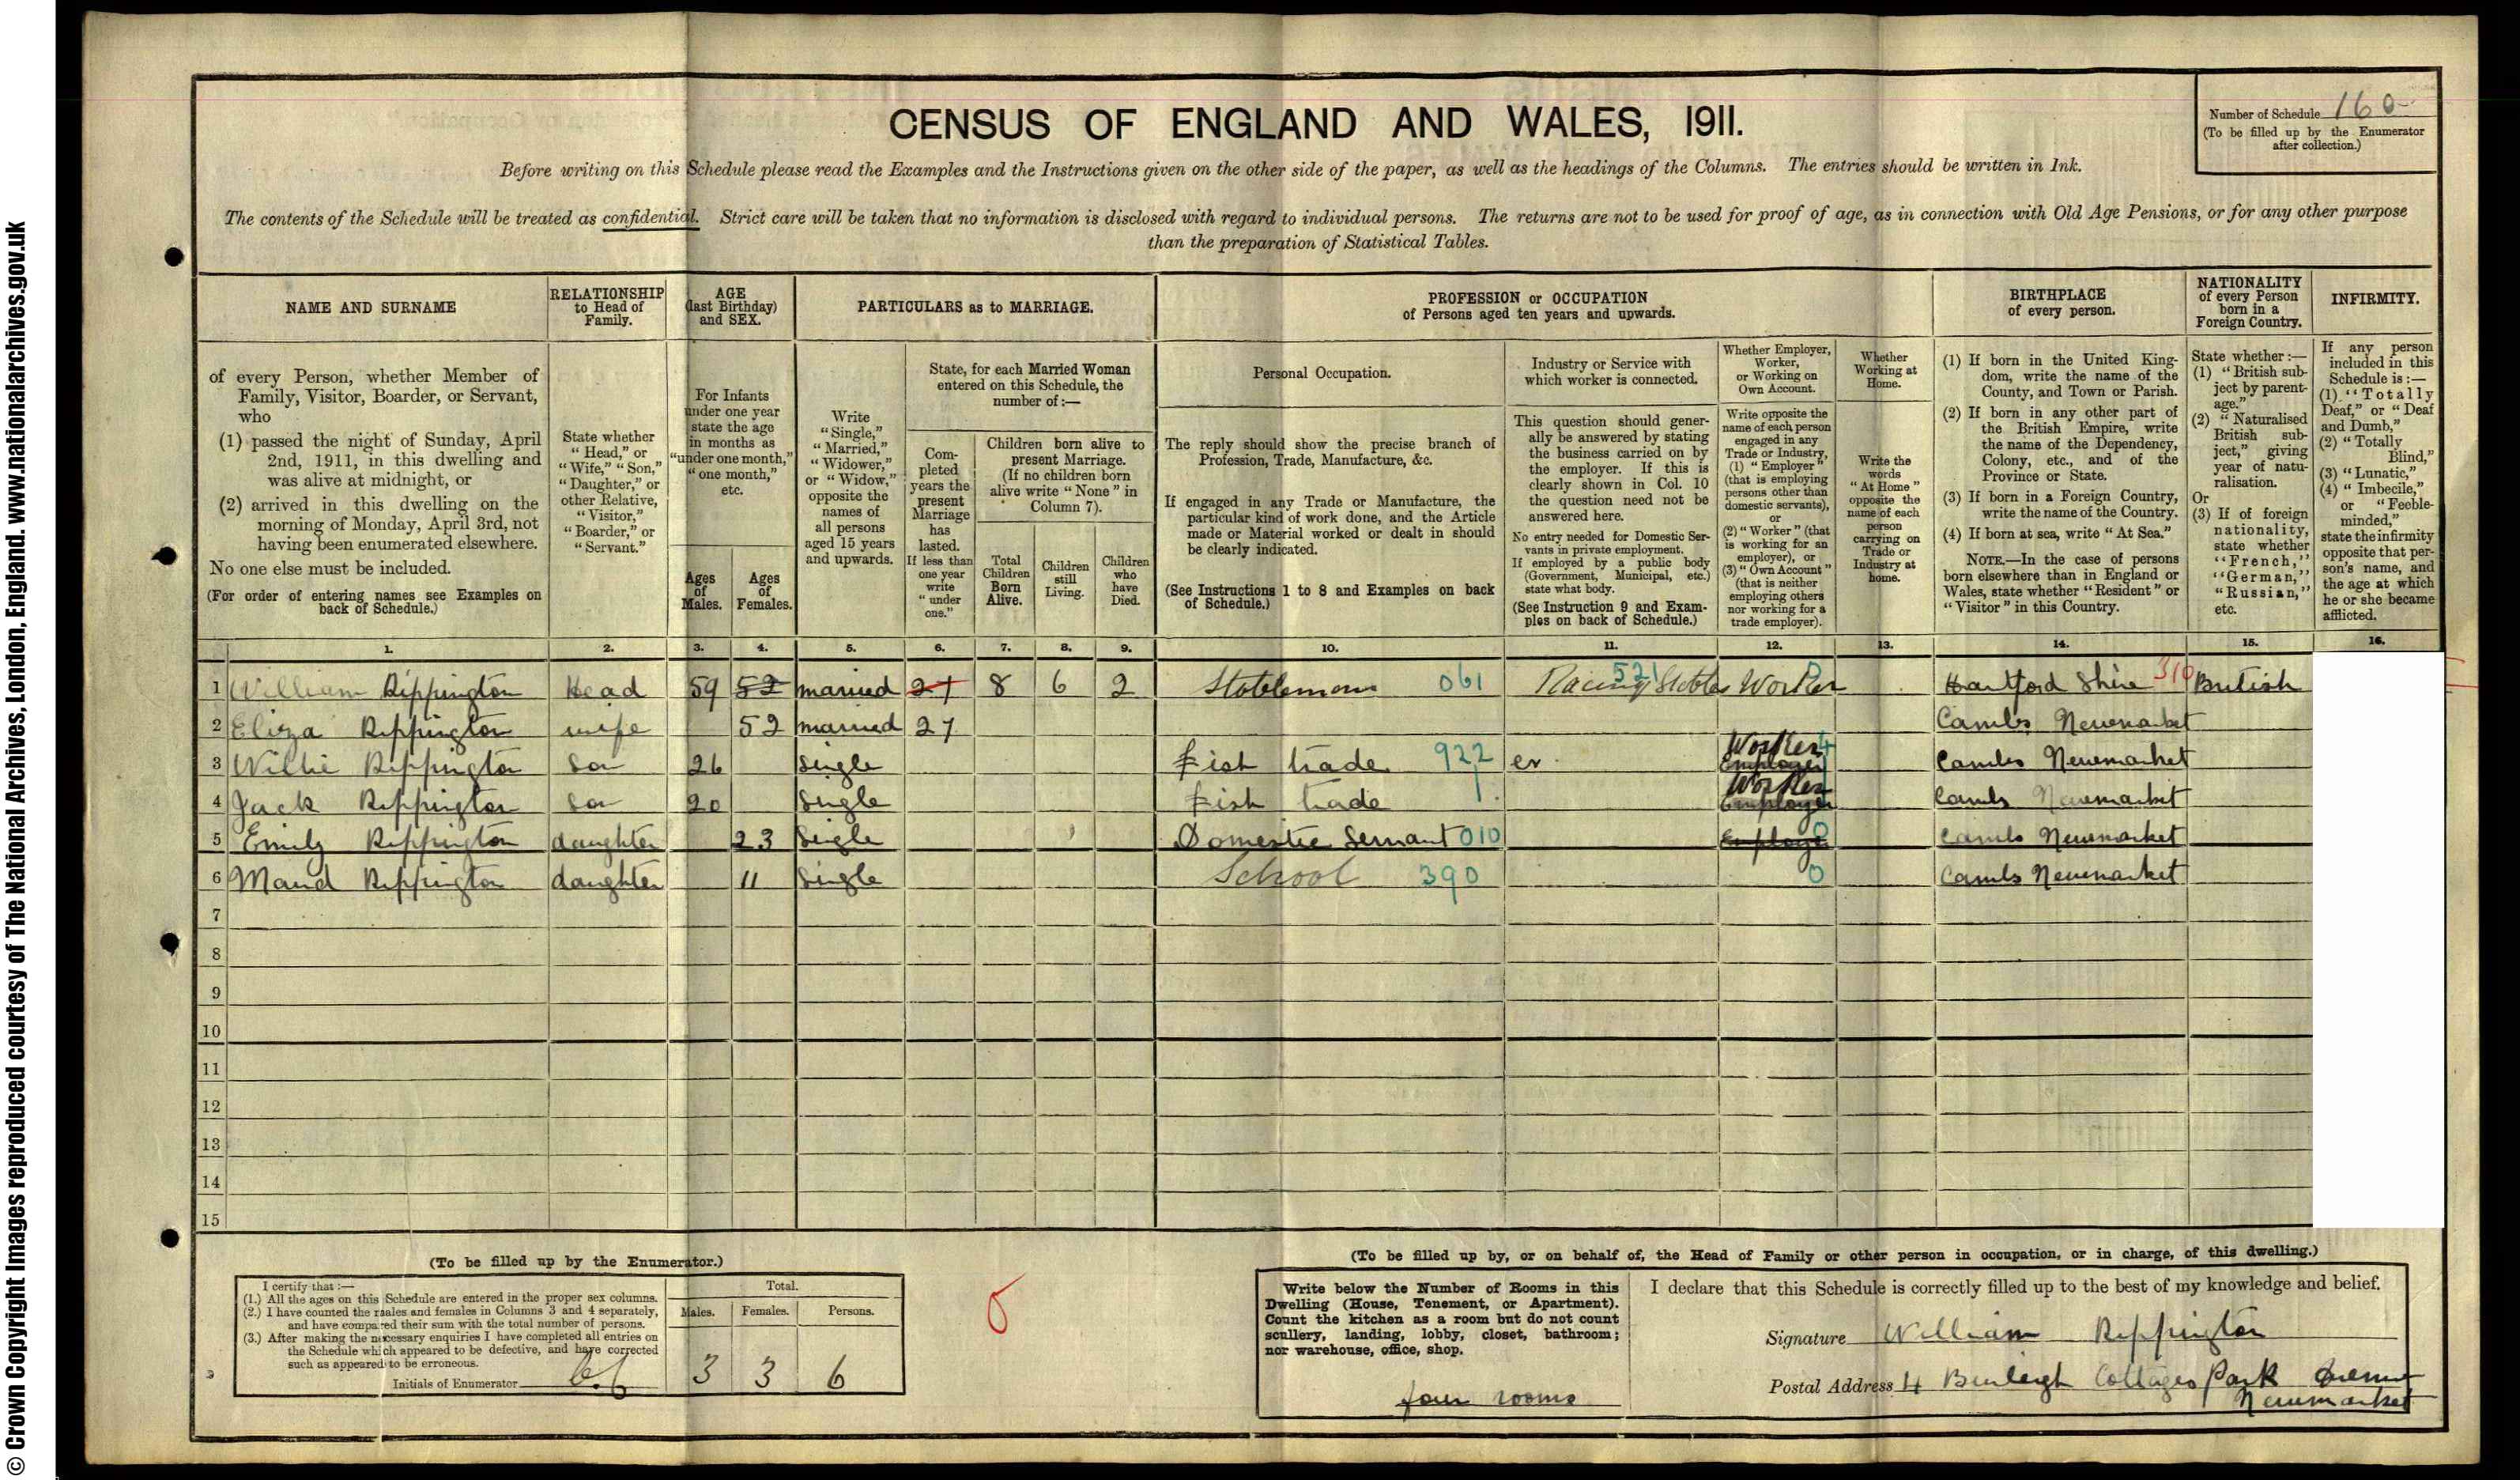 © Crown Copyright Images reproduced courtesy of The National Archives, London, England. www.nationalarchives.gov.uk
CENSUS OF ENGLAND AND WALES, 1911.
Number of Schedule 160
(To be filled up by the Enumerator
after collection.)
Before writing on this Schedule please read the Examples and the Instructions given on the other side of the paper, as well as the headings of the Columns. The entries should be written in Ink.
The contents of the Schedule will be treated as confidential. Strict care will be taken that no information is disclosed with regard to individual persons. The returns are not to be used for proof of age, as in connection with Old Age Pensions, or for any other purpose
than the preparation of Statistical Tables.
NAME AND SURNAME
of every Person, whether Member of
Family, Visitor, Boarder, or Servant,
who
(1) passed the night of Sunday, April
2nd, 1911, in this dwelling and
was alive at midnight, or
(2) arrived in this dwelling on the
morning of Monday, April 3rd, not
having been enumerated elsewhere.
No one else must be included.
(For order of entering names see Examples on
back of Schedule.)
RELATIONSHIP
to Head of
Family.
State whether
"Head," or
"Wife," "Son,"
"Daughter," or
other Relative,
"Visitor,"
"Boarder," or
"Servant."
AGE
(last Birthday)
and SEX.
For Infants
under one year
state the age
in months as
"under one month,"
"one month,"
etc.
Ages
of
Males.
Ages
of
Females.
PARTICULARS as to MARRIAGE.
Write
"Single,"
"Married,"
"Widower,"
or "Widow,"
opposite the
names of
all persons
aged 15 years
and upwards.
State, for each Married Woman
entered on this Schedule, the
number of:—
Com-
pleted
years the
present
Marriage
has
lasted.
If less than
one year
write
"under
one."
Children born alive to
present Marriage.
(If no children born
alive write "None" in
Column 7).
Total
Children
Born
Alive.
Children
still
Living.
Children
who
have
Died.
PROFESSION or OCCUPATION
of Persons aged ten years and upwards.
Personal Occupation.
The reply should show the precise branch of
Profession, Trade, Manufacture, &c.
If engaged in any Trade or Manufacture, the
particular kind of work done, and the Article
made or Material worked or dealt in should
be clearly indicated.
(See Instructions 1 to 8 and Examples on back
of Schedule.)
Industry or Service with
which worker is connected.
This question should gener-
ally be answered by stating
the business carried on by
the employer. If this is
clearly shown in Col. 10
the question need not be
answered here.
No entry needed for Domestic Ser-
vants in private employment.
If employed by a public body
(Government, Municipal, etc.)
state what body.
(See Instruction 9 and Exam-
ples on back of Schedule.)
Whether Employer,
Worker,
or Working on
Own Account.
Write opposite the
name of each person
engaged in any
Trade or Industry,
(1) "Employer"
(that is employing
persons other than
domestic servants),
or
(2) "Worker" (that
is working for an
employer), or
(3) "Own Account"
(that is neither
employing others
nor working for a
trade employer).
Whether
Working at
Home.
Write the
words
"At Home"
opposite the
name of each
person
carrying on
Trade or
Industry at
home.
BIRTHPLACE
of every person.
(1) If born in the United King-
dom, write the name of the
County, and Town or Parish.
(2) If born in any other part of
the British Empire, write
the name of the Dependency,
Colony, etc., and of the
Province or State.
(3) If born in a Foreign Country,
write the name of the Country.
(4) If born at sea, write "At Sea."
NOTE.—In the case of persons
born elsewhere than in England or
Wales, state whether "Resident" or
"Visitor" in this Country.
NATIONALITY
of every Person
born in a
Foreign Country.
State whether:—
(1) "British sub-
ject by parent-
age."
(2) "Naturalised
British sub-
ject," giving
year of natu-
ralisation.
Or
(3) If of foreign
nationality,
state whether
"French,"
"German,"
"Russian,"
etc.
INFIRMITY.
If any person
included in this
Schedule is:—
(1) "Totally
Deaf," or "Deaf
and Dumb,"
(2) "Totally
Blind,"
(3) "Lunatic,"
(4) "Imbecile,"
or "Feeble-
minded,"
state the infirmity
opposite that per-
son's name, and
the age at which
he or she became
afflicted.
1. 2. 3. 4. 5. 6. 7. 8. 9. 10. 11. 12. 13. 14. 15. 16.
1 William Rippington Head 59 52 married 27 8 6 2 Stableman 061 Racing Stables 521 Worker 0 Hartford Shire 310 British
2 Eliza Rippington wife 52 married 27 Cambs Newmarket
3 Willie Rippington Son 26 Single Fish trade 922 er. Worker Employer Cambs Newmarket
4 Jack Rippington Son 20 Single Fish trade Worker Employer Cambs Newmarket
5 Emily Rippington daughter 23 Single Domestic Servant 010 0 Cambs Newmarket
6 Maud Rippington daughter 11 Single School 390 0 Cambs Newmarket
7
8
9
10
11
12
13
14
15
(To be filled up by the Enumerator.)
I certify that:—
(1.) All the ages on this Schedule are entered in the proper sex columns.
(2.) I have counted the males and females in Columns 3 and 4 separately,
and have compared their sum with the total number of persons.
(3.) After making the necessary enquiries I have completed all entries on
the Schedule which appeared to be defective, and have corrected
such as appeared to be erroneous.
Initials of Enumerator
Total.
Males. Females. Persons.
3 3 6
(To be filled up by, or on behalf of, the Head of Family or other person in occupation, or in charge, of this dwelling.)
Write below the Number of Rooms in this
Dwelling (House, Tenement, or Apartment).
Count the kitchen as a room but do not count
scullery, landing, lobby, closet, bathroom;
nor warehouse, office, shop.
four rooms
I declare that this Schedule is correctly filled up to the best of my knowledge and belief.
Signature William Rippington
Postal Address 4 Burleigh Cottages Park Avenue
Newmarket